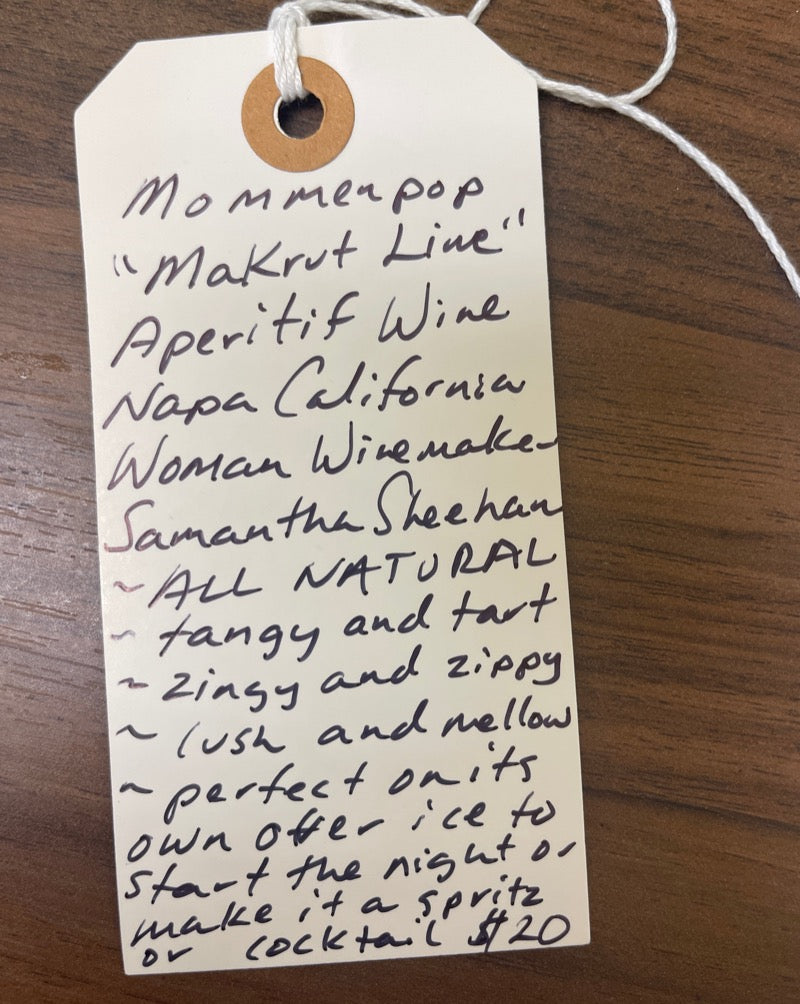 Mommenpop
"Makrut Lime"
Aperitif Wine
Napa California
Woman Winemaker
Samantha Sheehan
~ ALL NATURAL
~ tangy and tart
~ zingy and zippy
~ lush and mellow
~ perfect on its
own offer ice to
start the night or
make it a spritz
or cocktail $20